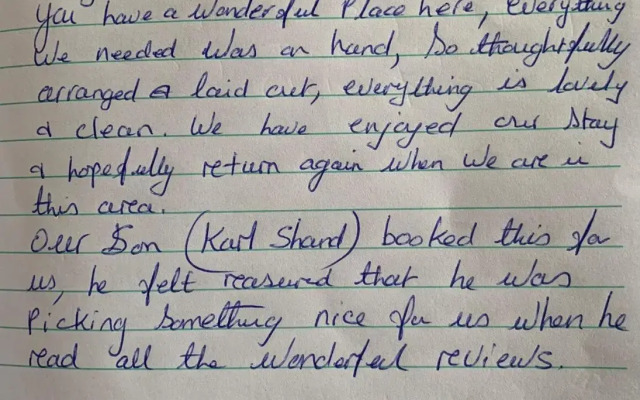 you have a wonderful Place here, everything
We needed was on hand, So thoughtfully
arranged & laid out, everything is lovely
& clean. We have enjoyed our stay
& hopefully return again when we are in
this area.
Our Son (Karl Shard) booked this for
us, he felt reasured that he was
Picking Something nice for us when he
read all the wonderful reviews.